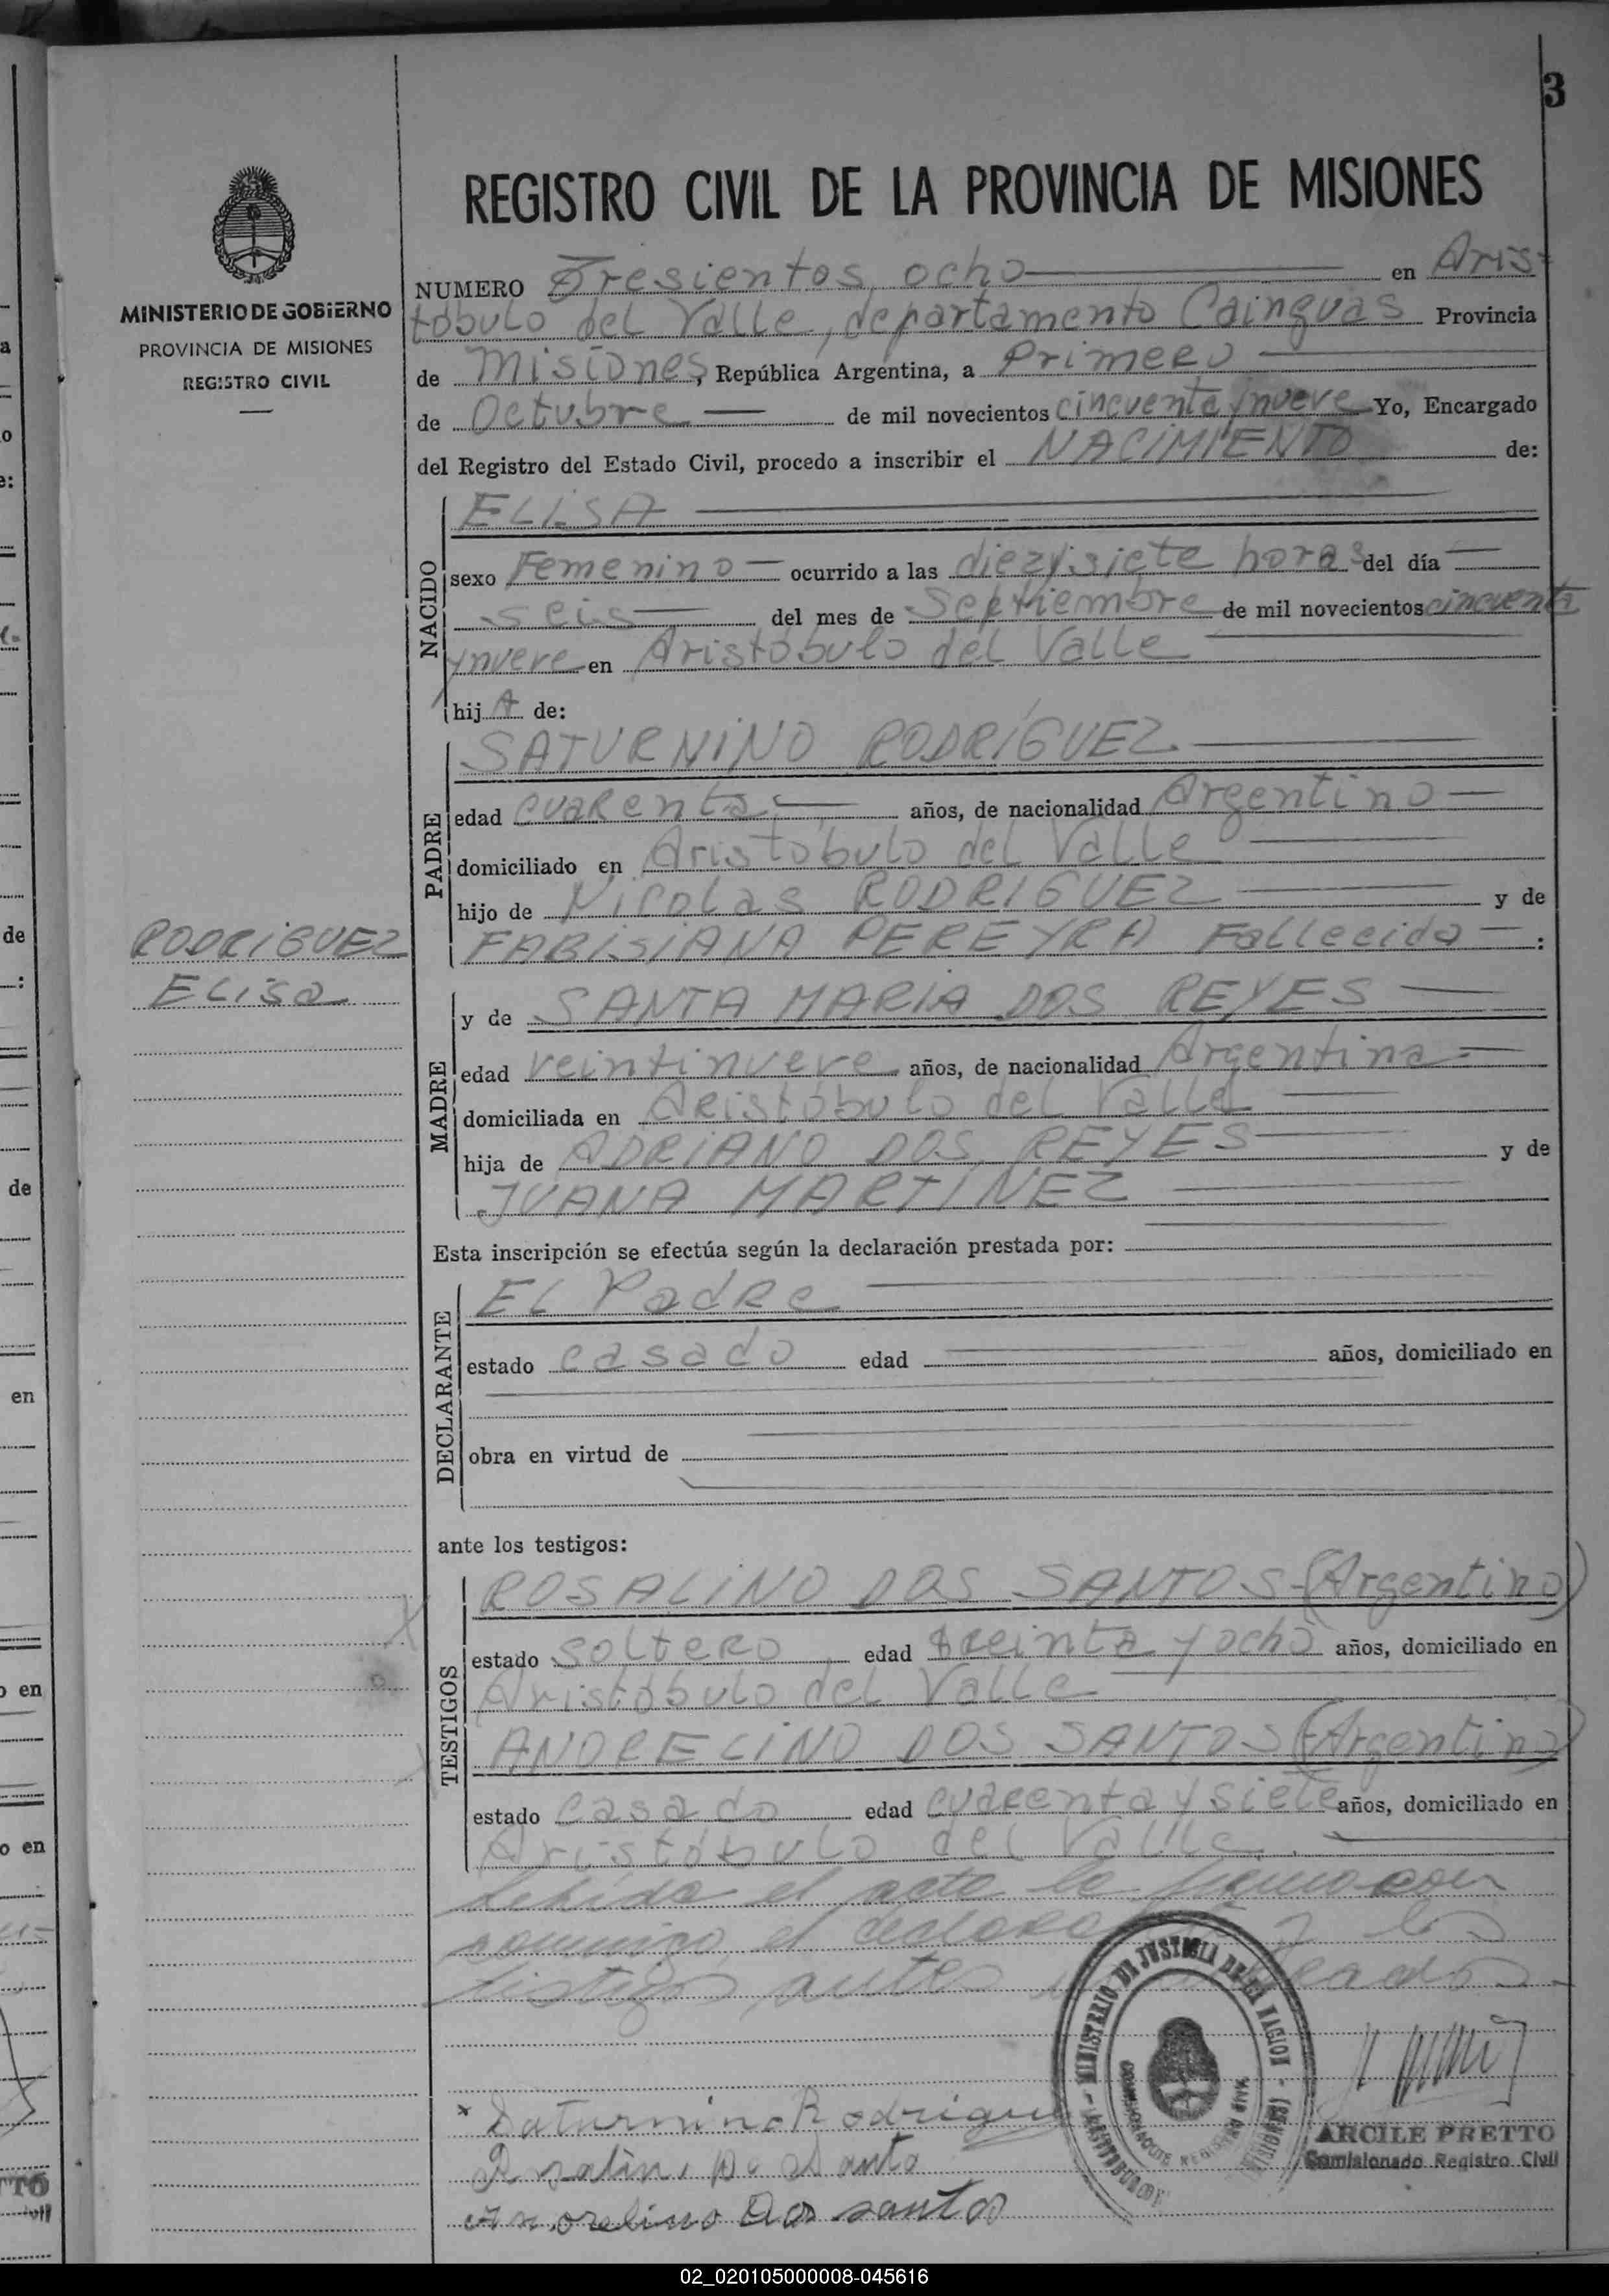 3
REGISTRO CIVIL DE LA PROVINCIA DE MISIONES
MINISTERIO DE GOBIERNO
PROVINCIA DE MISIONES
REGISTRO CIVIL
NUMERO Tresientos ocho en Aris-
tóbulo del Valle, departamento Cainguas Provincia
de Misiones, República Argentina, a Primero
de Octubre de mil novecientos cincuenta y nueve Yo, Encargado
del Registro del Estado Civil, procedo a inscribir el NACIMIENTO de:
NACIDO
ELISA
sexo Femenino ocurrido a las diez y siete horas del día
seis del mes de Septiembre de mil novecientos cincuenta
y nueve en Aristóbulo del Valle
hij A de:
PADRE
SATURNINO RODRÍGUEZ
edad cuarenta años, de nacionalidad Argentino
domiciliado en Aristóbulo del Valle
hijo de Nicolas RODRIGUEZ y de
FABISIANA PEREYRA Fallecida :
RODRIGUEZ
Elisa
MADRE
y de SANTA MARIA DOS REYES
edad veintinueve años, de nacionalidad Argentina
domiciliada en Aristóbulo del Valle
hija de ADRIANO DOS REYES y de
JUANA MARTINEZ
Esta inscripción se efectúa según la declaración prestada por:
DECLARANTE
El Padre
estado casado edad años, domiciliado en
obra en virtud de
ante los testigos:
TESTIGOS
ROSALINO DOS SANTOS-(Argentino)
estado soltero edad treinta y ocho años, domiciliado en
Aristóbulo del Valle
ANDRELINO DOS SANTOS (Argentino)
estado casado edad cuarenta y siete años, domiciliado en
Aristóbulo del Valle.
Lehída el acta la firma con
conmigo el y los
testigos antes
MINISTERIO DE JUSTICIA DE LA NACION
Saturnino Rodrigue
Rosalin Do Santo
Andrelino Dos santos
ARCILE PRETTO
Comisionado Registro Civil
02_020105000008-045616